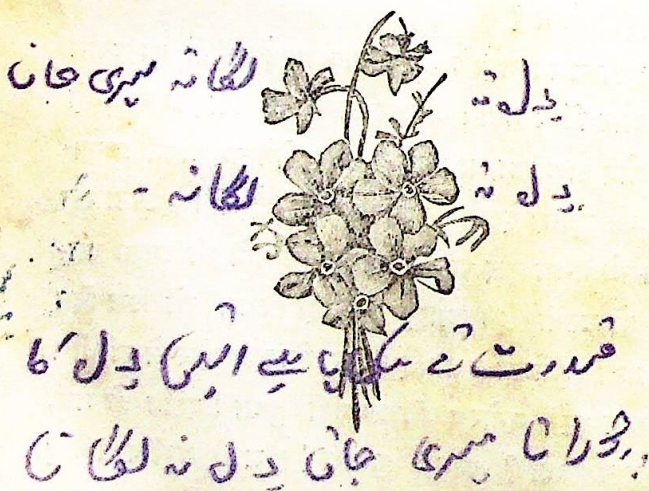 دل نہ لگانہ میری جان
دل نہ لگانہ -
قدرت نے سکھایا ہے انہیں دل کا
چرانا میری جان دل نہ لگانا